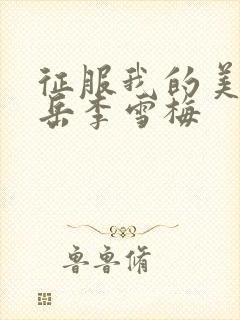 征服我的美
岳李雪梅
鲁鲁修